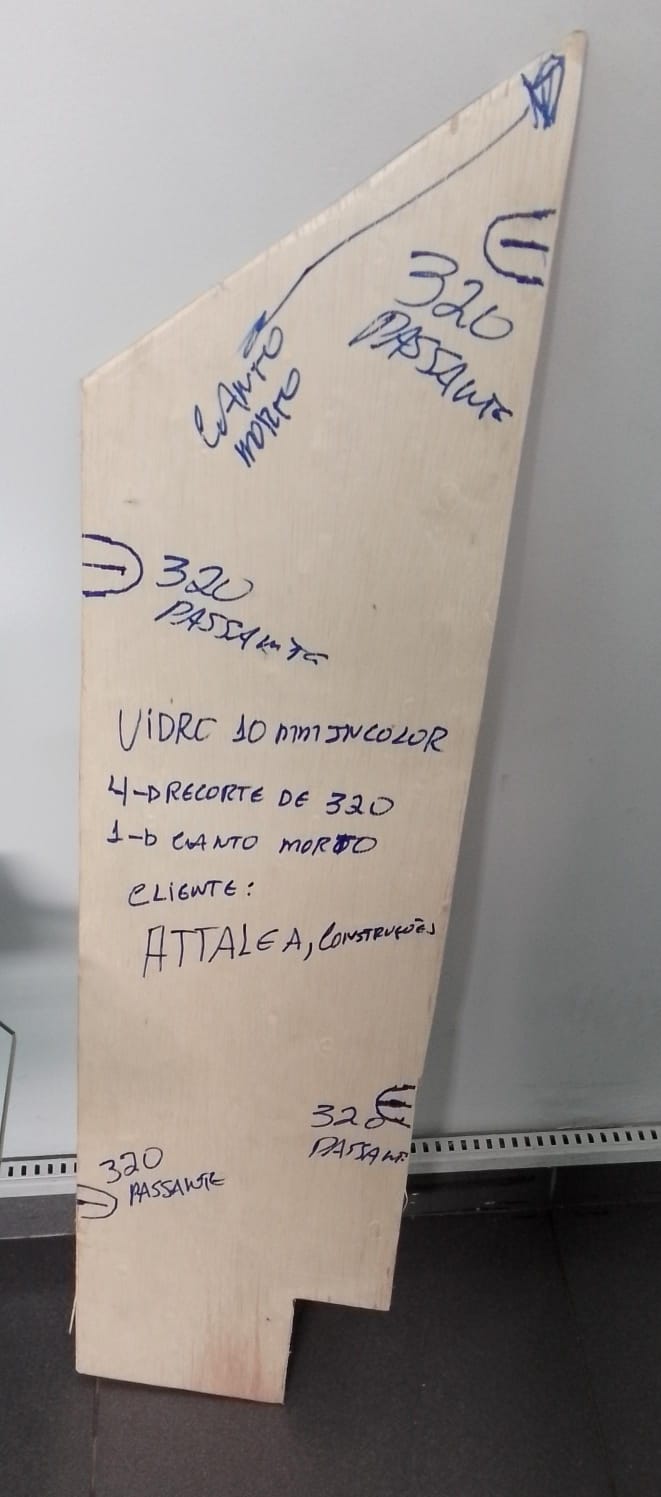 320
PASSANTE
CANTO
MORTO
320
PASSANTE
VIDRO 10 MM INCOLOR
4-D RECORTE DE 320
1-D CANTO MORTO
CLIENTE:
ATTALEA, CONSTRUÇÕES
320
PASSANTE
320
PASSANTE